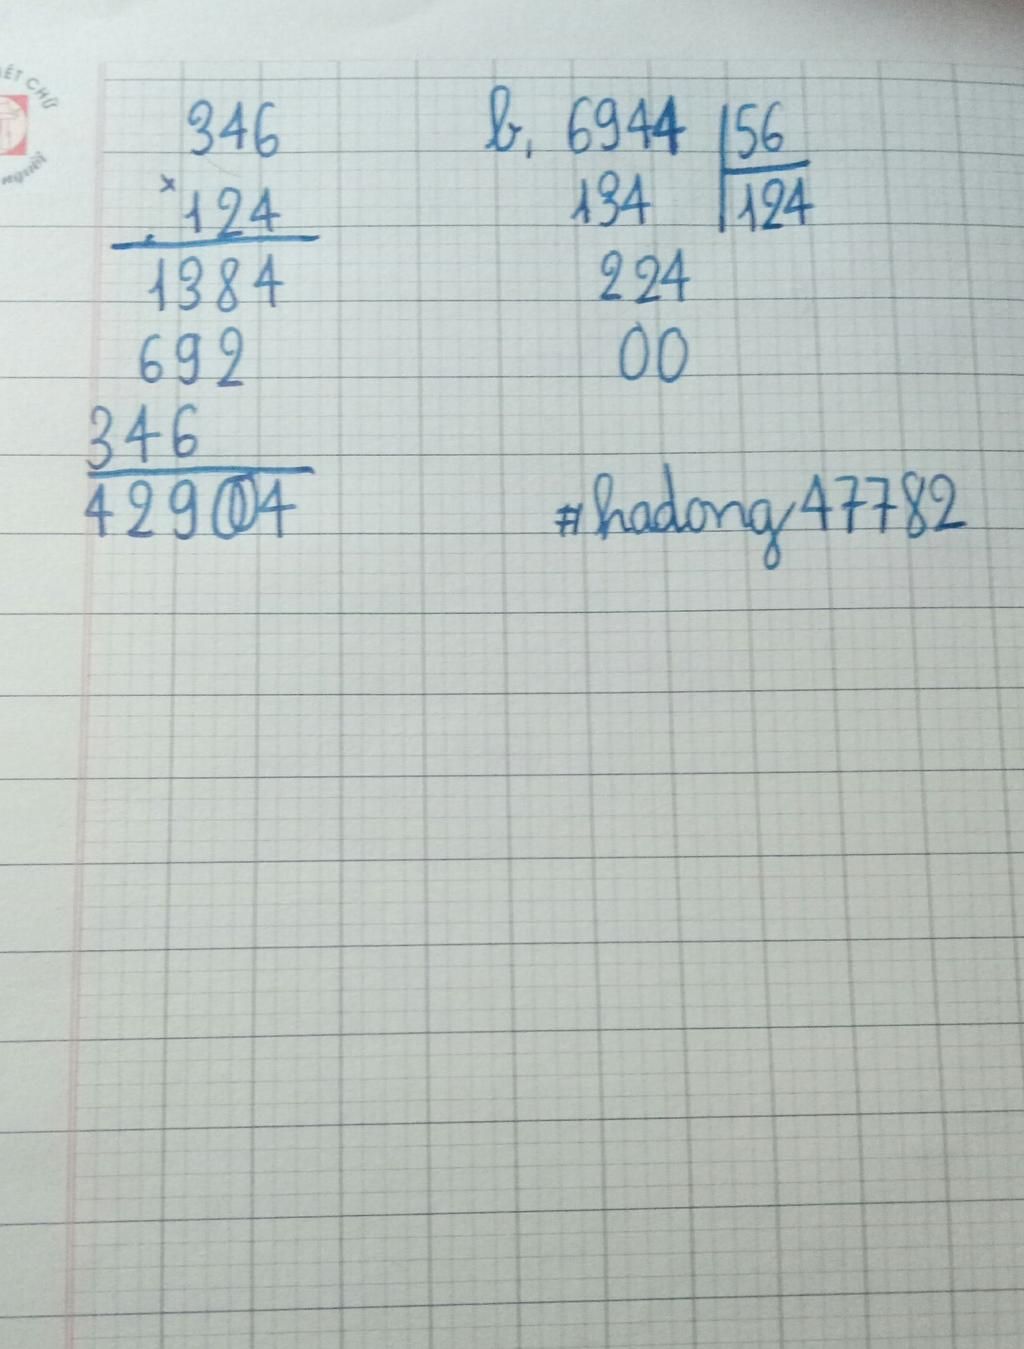 346
×
124
1384
692
346
42904
b, 6944 56
134 124
224
00
#hadong47782
ÉT CHỮ
người